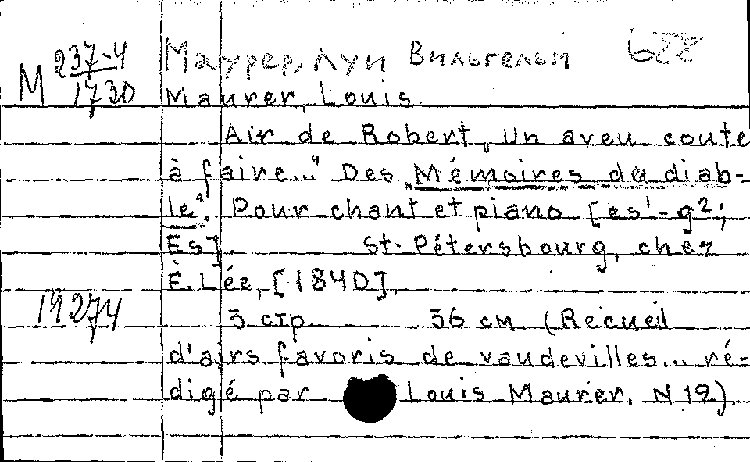 М 237-4
1730
Маурер, Луи Вильгельм 622
Maurer, Louis.
Air de Robert „Un aveu coute
à faire..." Des „Mémoires du diab-
le". Pour chant et piano [es¹-g²;
Es]. St-Pétersbourg, chez
É. Léz, [1840].
19274
3 стр. 36 см (Recueil
d'airs favoris de vaudevilles... ré-
digé par Louis Maurer. N 19).